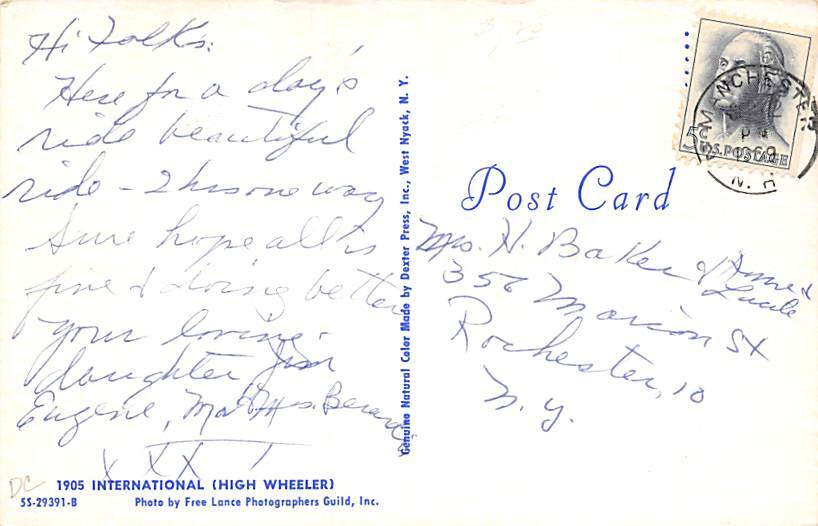 Hi Folks:
Here for a day's
ride beautiful
ride - 2 hrs one way
Sure hope all is
fine & doing better
your loving
daughter Jim
Eugene, Mr & Mrs.
XXX
DC
1905 INTERNATIONAL (HIGH WHEELER)
5S-29391-B Photo by Free Lance Photographers Guild, Inc.
Genuine Natural Color Made by Dexter Press, Inc., West Nyack, N. Y.
5c
U.S. POSTAGE
MANCHESTER
PM
N. H
Post Card
Mrs. H. Baker &
Lucile
356 Marion St
Rochester, 10
N. Y.